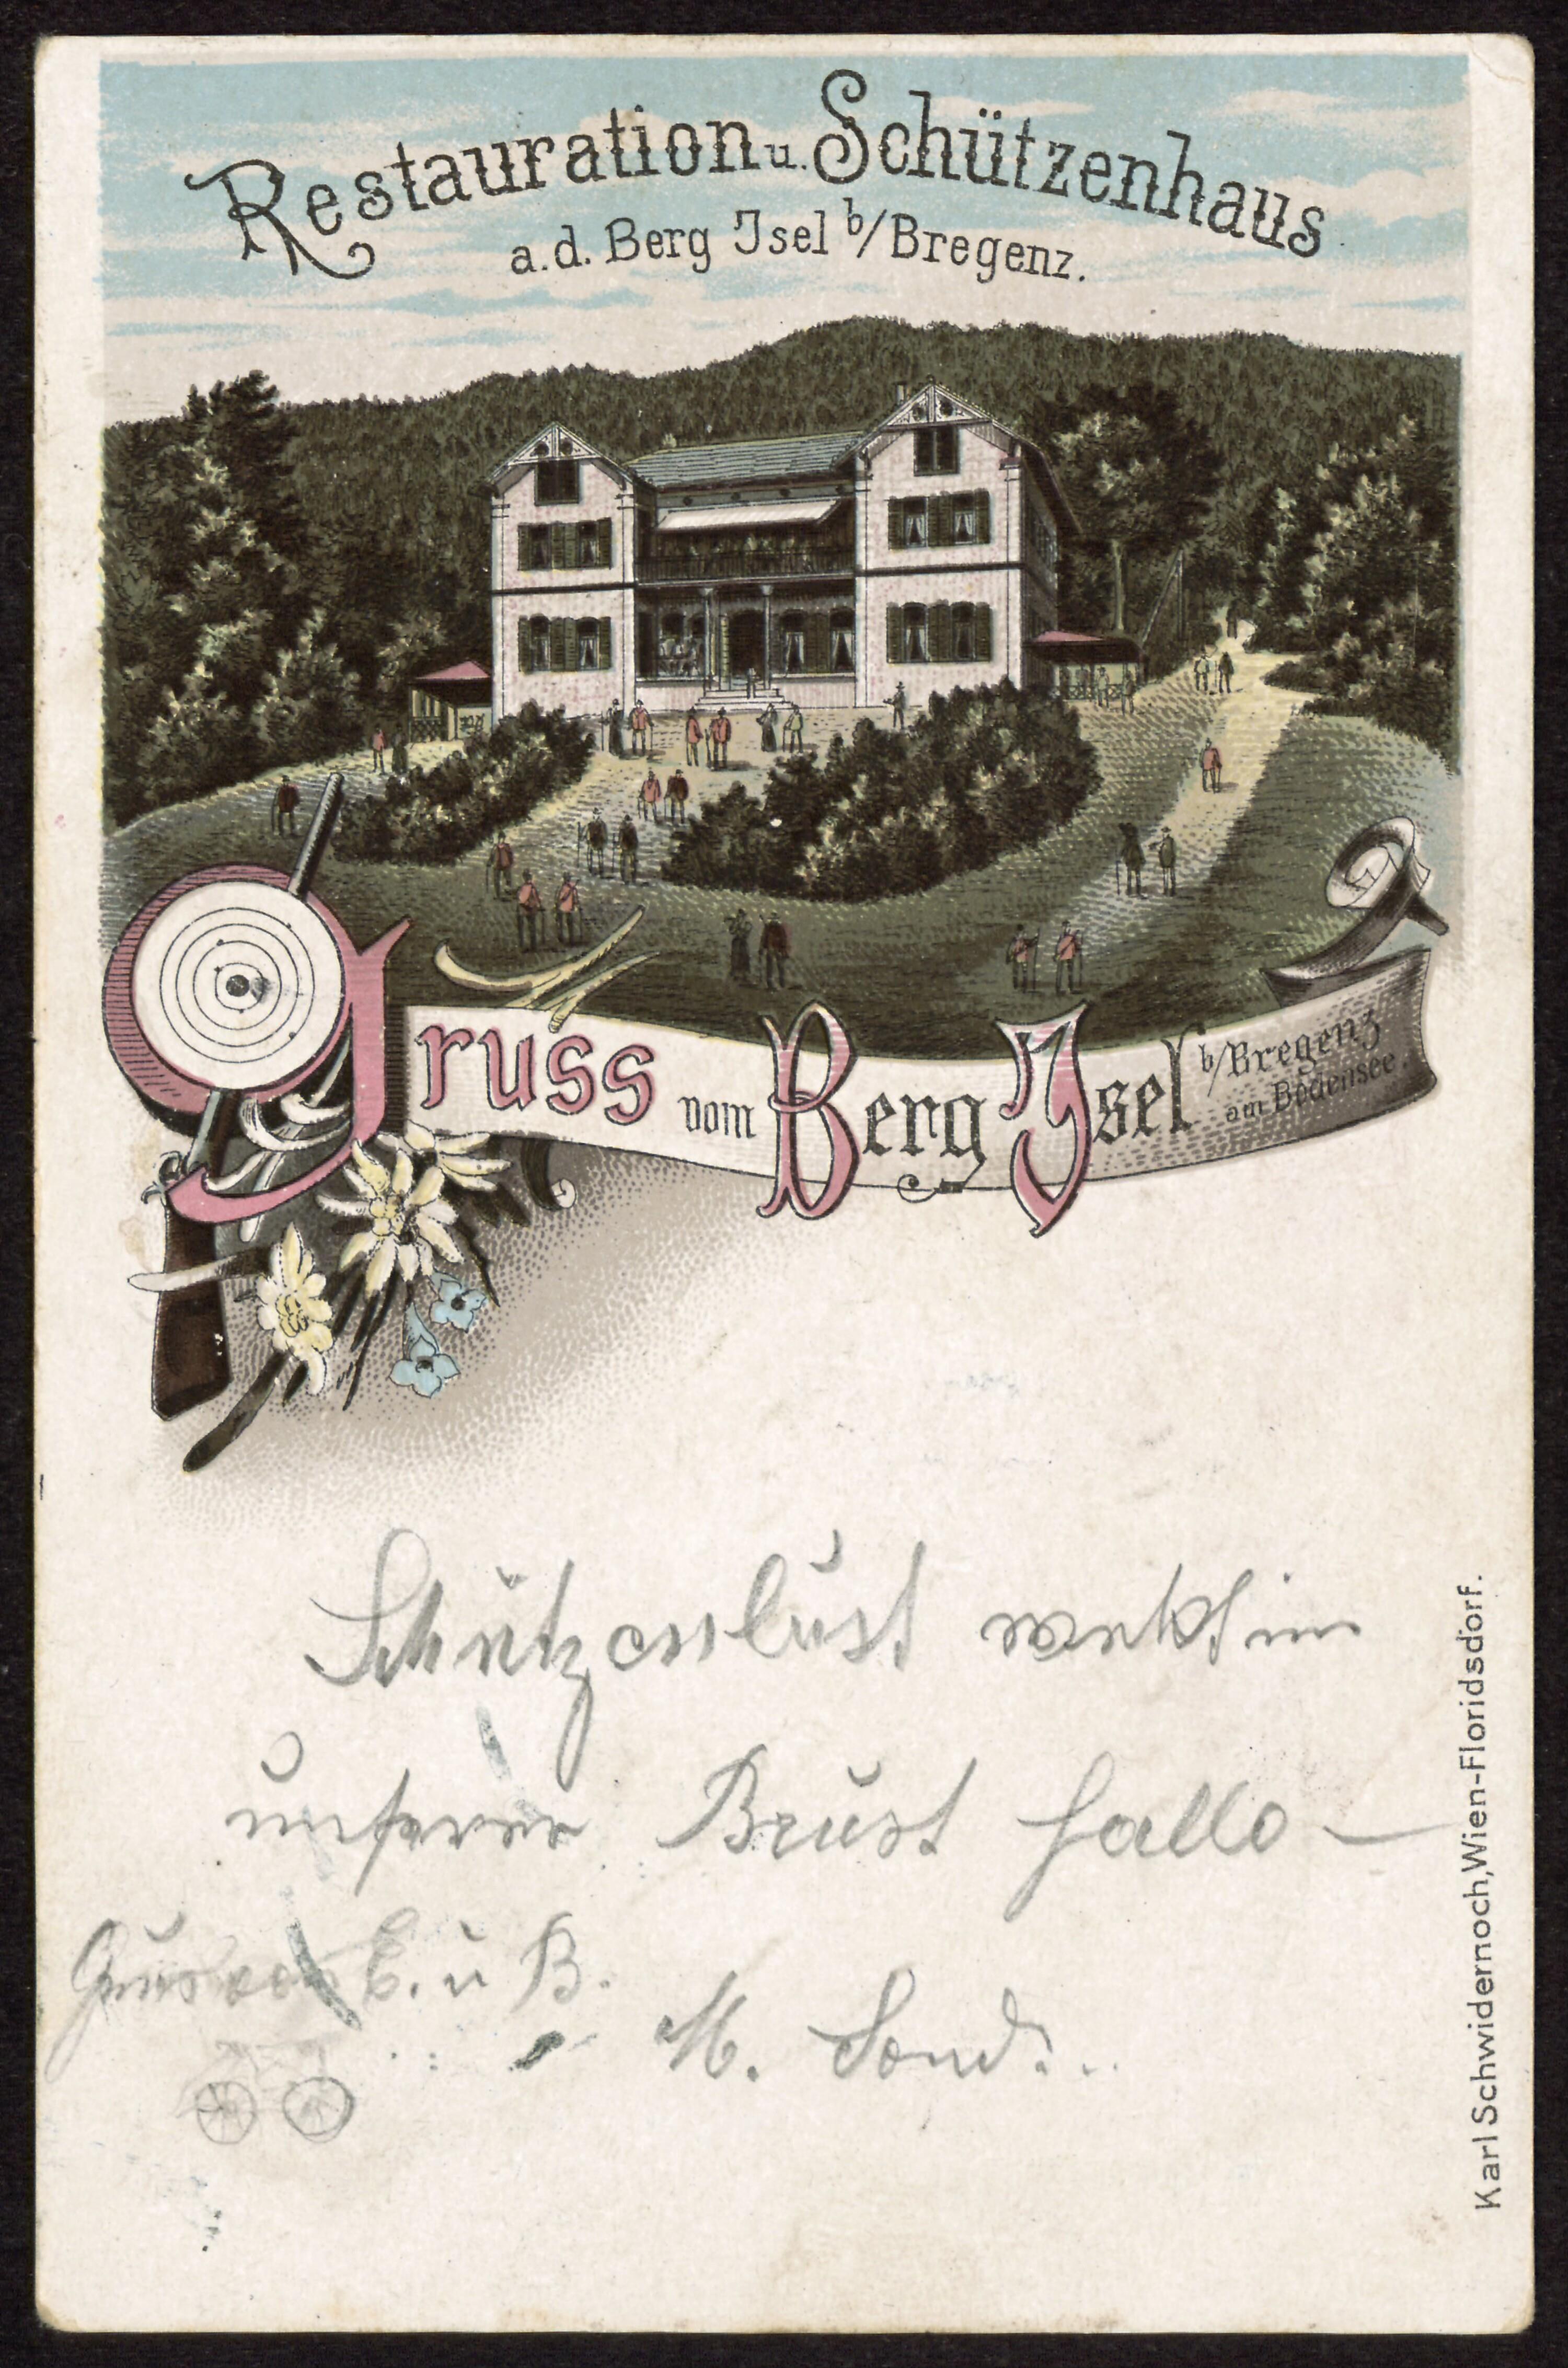 Restauration u. Schützenhaus
a.d. Berg Isel b/Bregenz.
Gruss vom Berg Isel b/Bregenz
am Bodensee.
Schützenlust weckt in
unserer Brust hallo –
Gruss von E. u B.
M.
Karl Schwidernoch, Wien-Floridsdorf.